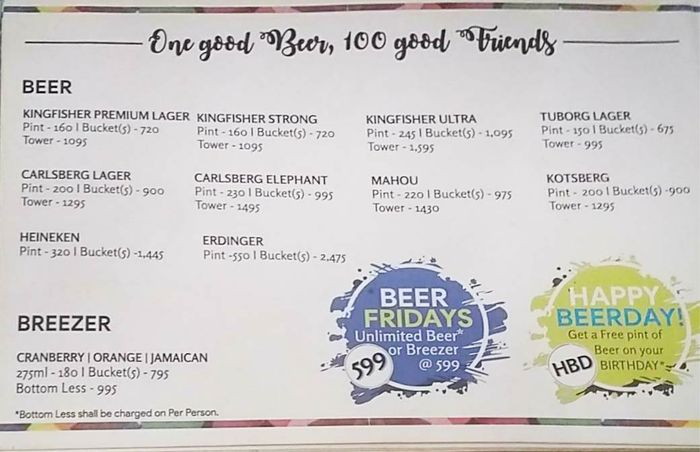 One good Beer, 100 good Friends
BEER
KINGFISHER PREMIUM LAGER
Pint - 160 | Bucket(5) - 720
Tower - 1095
KINGFISHER STRONG
Pint - 160 | Bucket(5) - 720
Tower - 1095
KINGFISHER ULTRA
Pint - 245 | Bucket(5) - 1,095
Tower - 1,595
TUBORG LAGER
Pint - 150 | Bucket(5) - 675
Tower - 995
CARLSBERG LAGER
Pint - 200 | Bucket(5) - 900
Tower - 1295
CARLSBERG ELEPHANT
Pint - 230 | Bucket(5) - 995
Tower - 1495
MAHOU
Pint - 220 | Bucket(5) - 975
Tower - 1430
KOTSBERG
Pint - 200 | Bucket(5) -900
Tower - 1295
HEINEKEN
Pint - 320 | Bucket(5) -1,445
ERDINGER
Pint -550 | Bucket(5) - 2,475
BREEZER
CRANBERRY | ORANGE | JAMAICAN
275ml - 180 | Bucket(5) - 795
Bottom Less - 995
*Bottom Less shall be charged on Per Person.
BEER
FRIDAYS
Unlimited Beer*
or Breezer
@ 599
599
HAPPY
BEERDAY!
Get a Free pint of
Beer on your
BIRTHDAY*
HBD